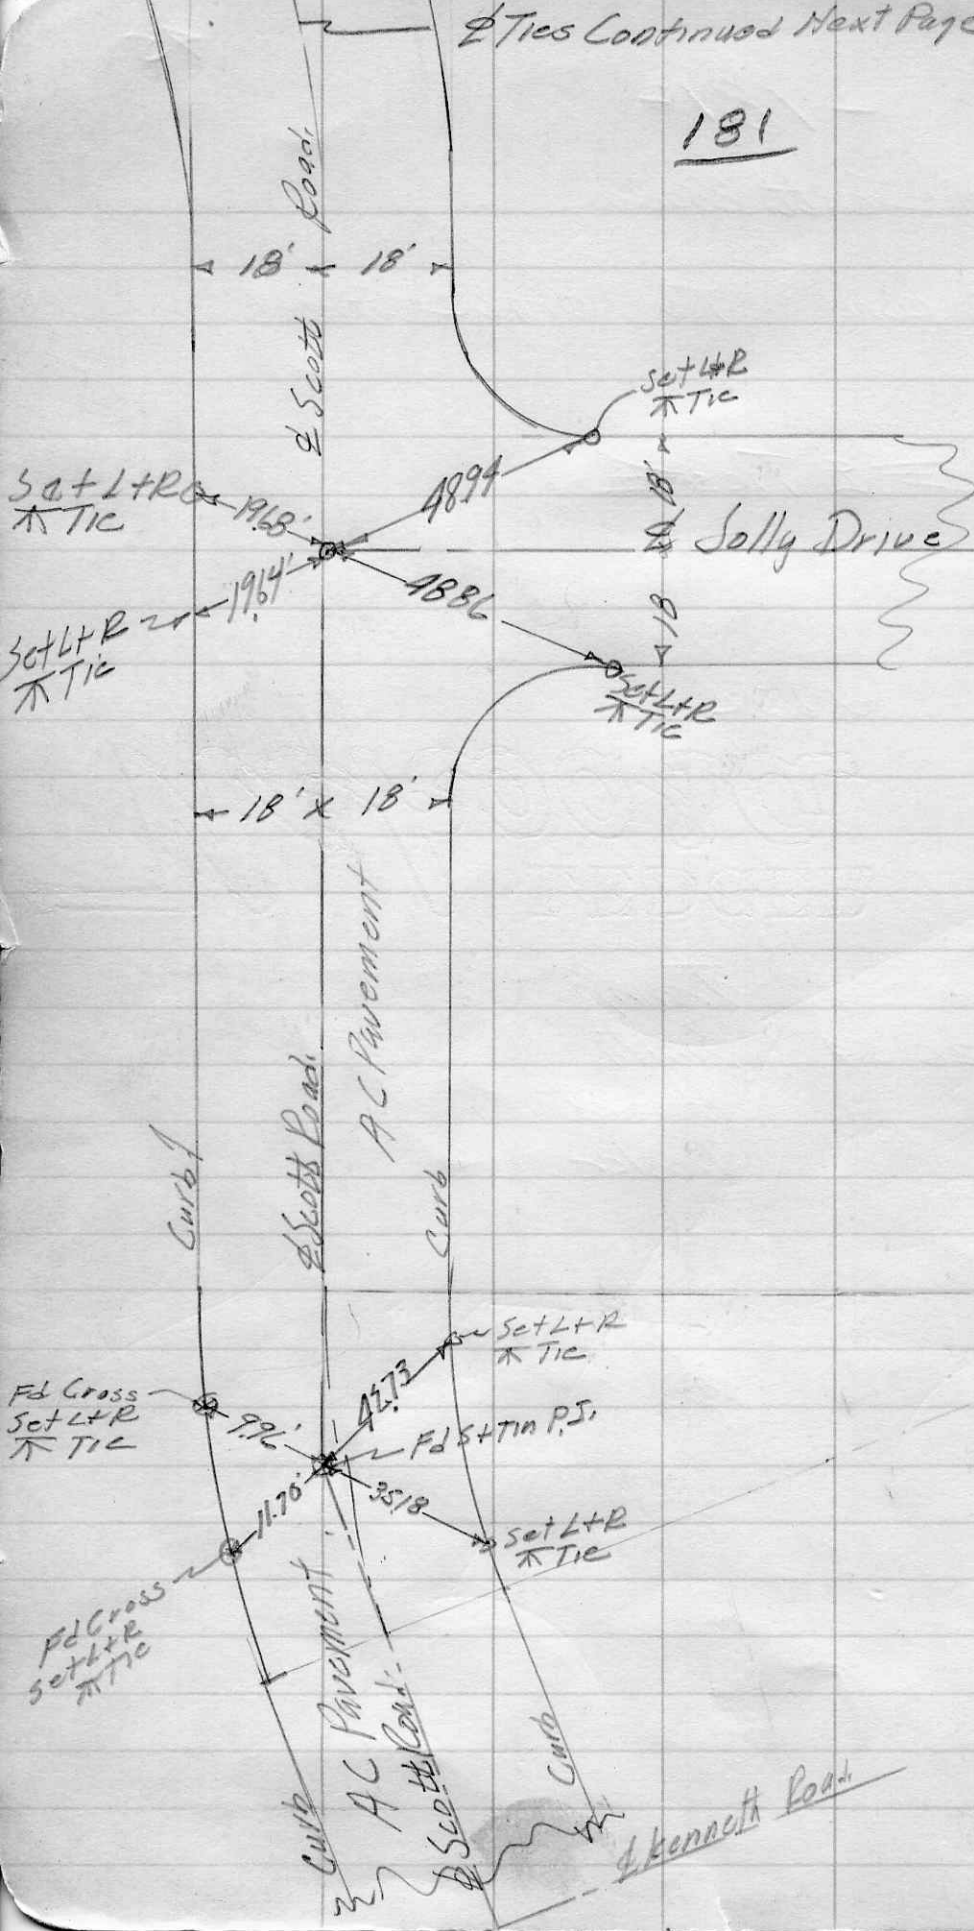 ℄ Ties Continued Next Page
181
℄ Scott Road.
18' 18'
Set L+R
⊼ Tie
48.94
18'
Set L+R
⊼ Tie
19.68'
℄ Jolly Drive
19.64'
48.86
18
Set L+R
⊼ Tie
Set L+R
⊼ Tie
18' x 18'
AC Pavement
Curb
℄ Scott Road.
Curb
Set L+R
⊼ Tie
42.73
Fd Cross
Set L+R
⊼ Tie
9.96'
Fd S+Tin P.I.
11.76'
35.18
Set L+R
⊼ Tie
Fd Cross
Set L+R
⊼ Tie
AC Pavement
℄ Scott Road.
Curb
Curb
℄ Kenneth Road.